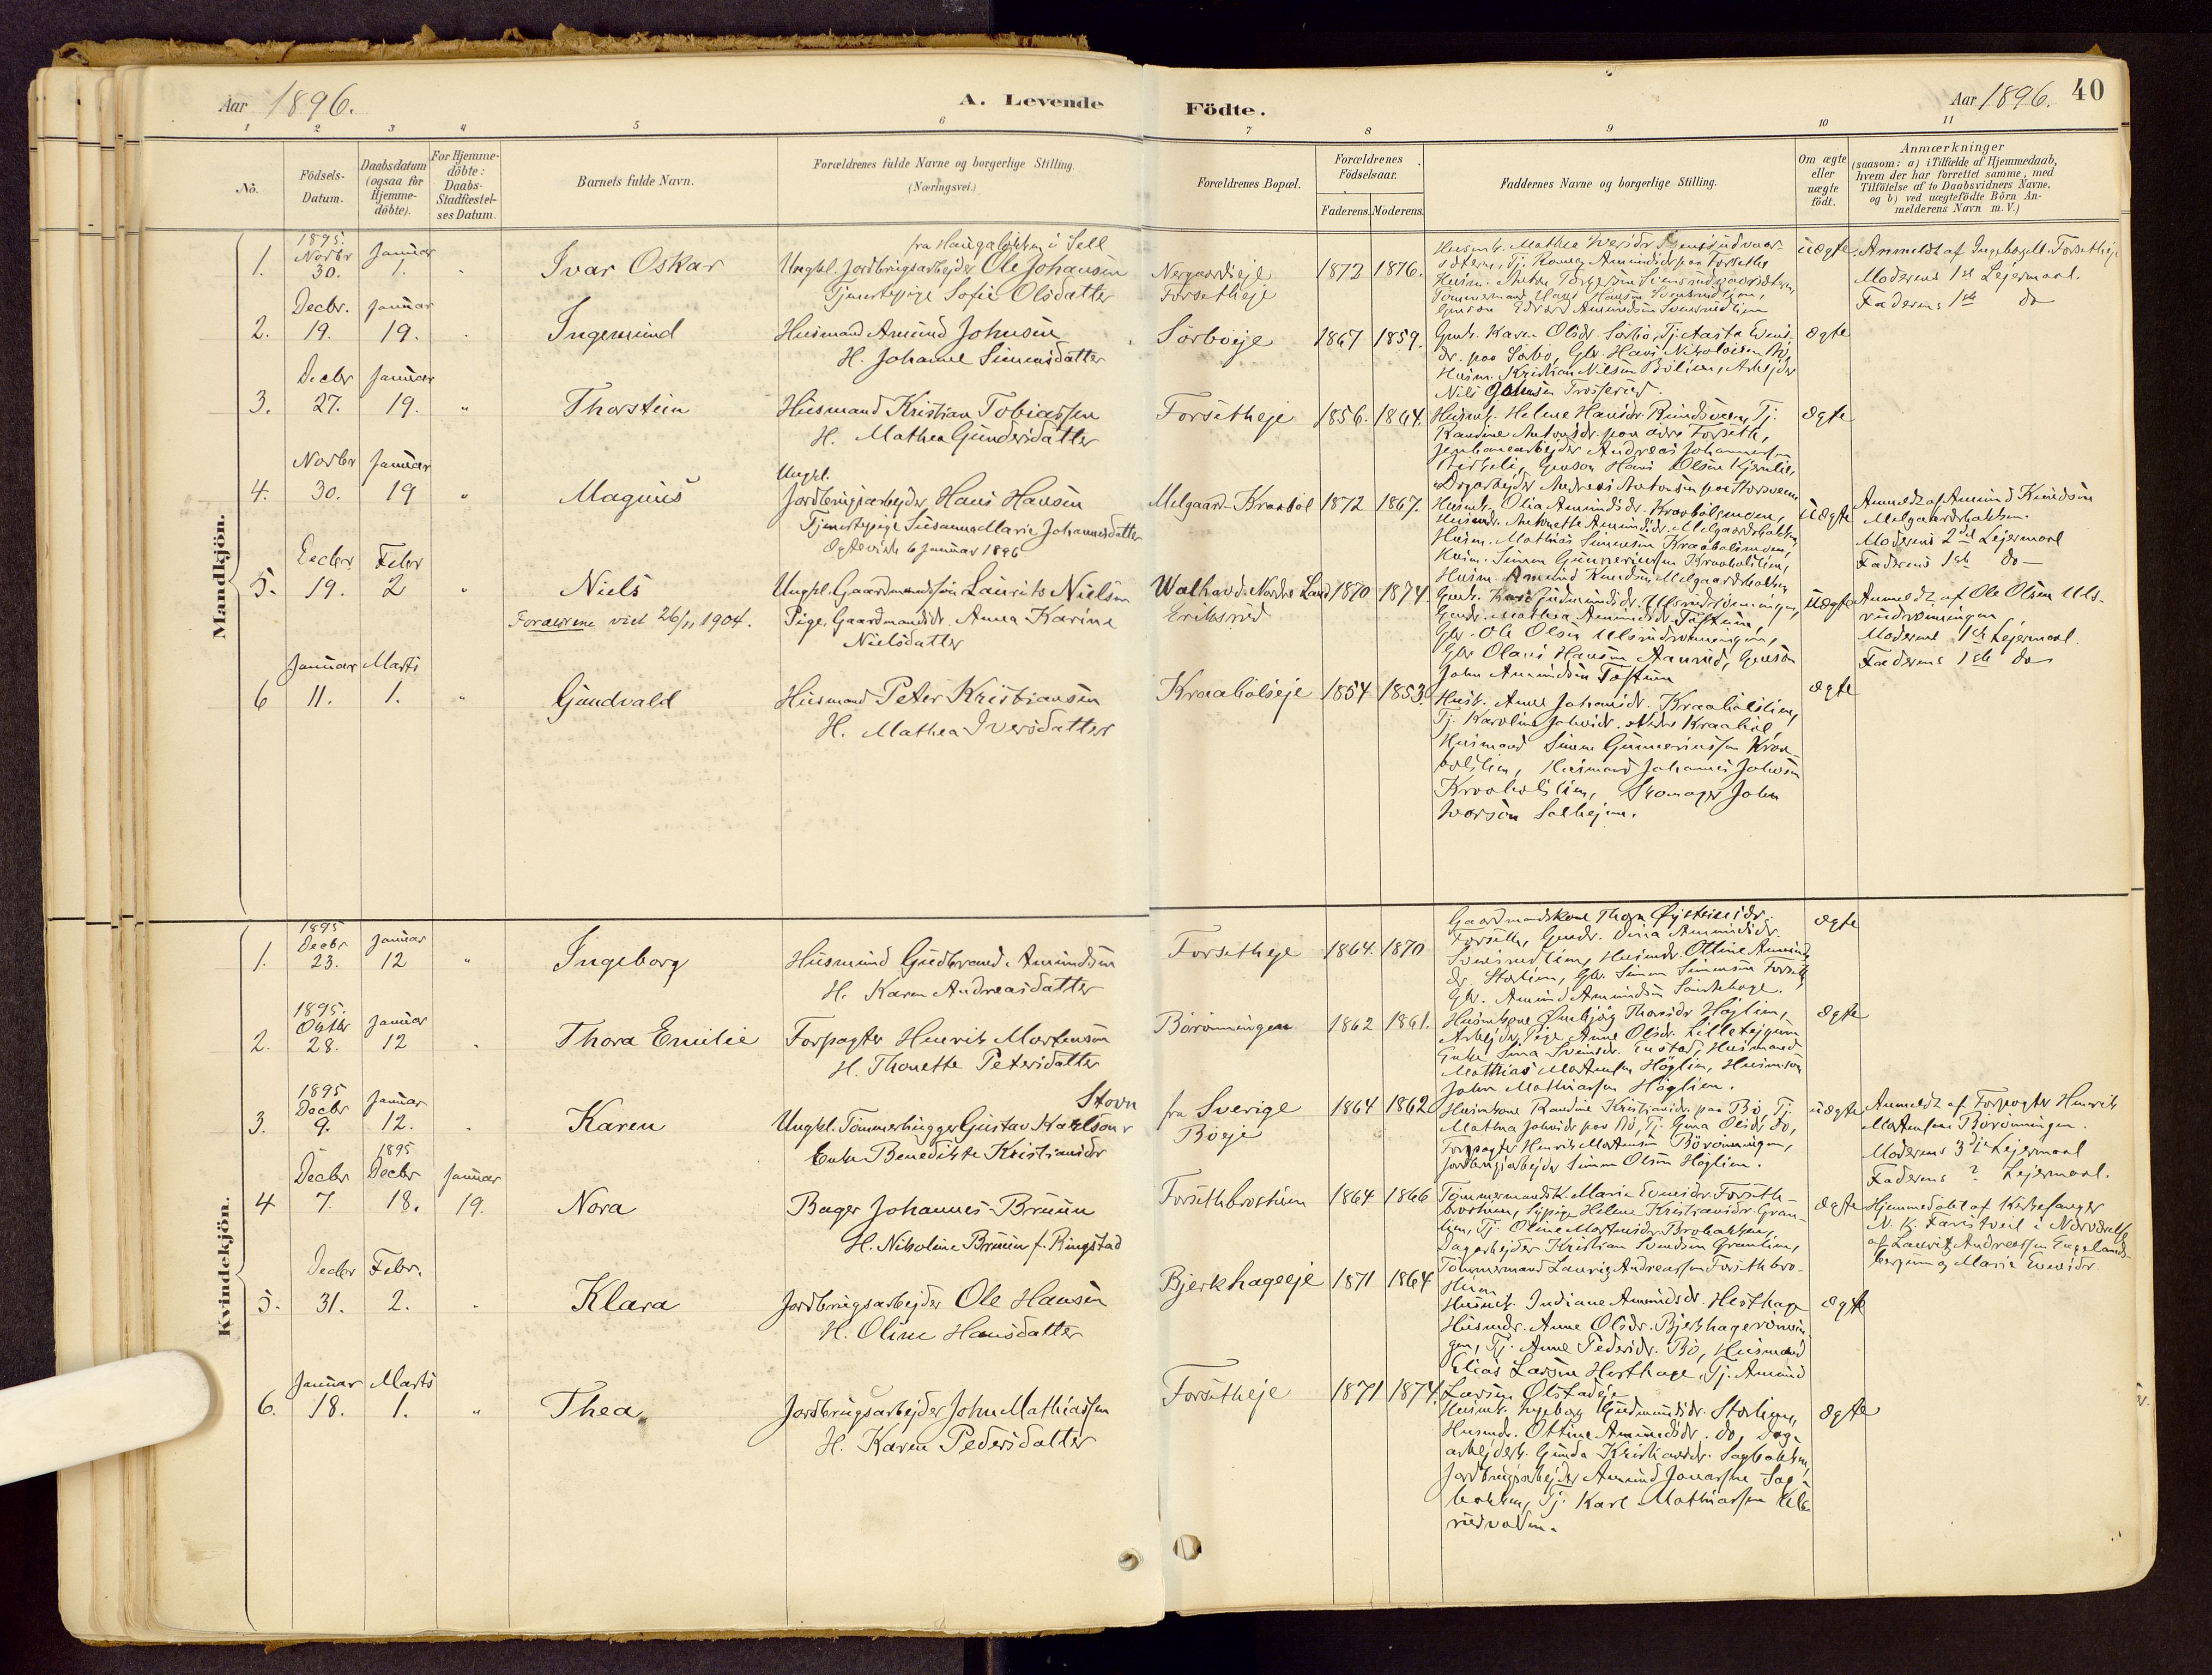 Aar 1896.
A. Levende
Födte.
Aar 1896. 40
1 2 3 4 5 6 7 8 9 10 11
No.
Födsels-
Datum.
Daabsdatum
(ogsaa for
Hjemme-
döbte).
For Hjemme-
döbte:
Daabs-
Stadfæstel-
ses Datum.
Barnets fulde Navn.
Forældrenes fulde Navne og borgerlige Stilling.
(Næringsvei.)
Forældrenes Bopæl.
Forældrenes
Födselsaar.
Faderens. Moderens.
Faddernes Navne og borgerlige Stilling.
Om ægte
eller
uægte
födt.
Anmærkninger
(saasom: a) i Tilfælde af Hjemmedaab,
hvem der har forrettet samme, med
Tilföielse af to Daabsvidners Navne,
og b) ved uægtefödte Börn An-
melderens Navn m. V.)
Mandkjön.
1.
1895.
Novbr
30.
Januar
1.
Ivar Oskar
fra Haugaløkken i Sell
Ungkl. Jordbrugsarbejder Ole Johansen
Tjenestepige Sofie Olsdatter
Nergaardseje
Forsetheje
1872 1876.
Tømmermand Hans Hansen Svensrudlien,
Gmsøn Edvard Amundsen Svensrudlien
uægte
Anmeldt af
Moderens 1ste Lejermaal.
Faderens 1ste do
2.
Decbr.
19.
Januar
19.
Ingemund
Husmand Amund Johnsen
H. Johanne Simensdatter
Sørboeje
1867 1859.
Gmk. Karen Olsdr. Sørbo,
dr. paa Sørbo, Gbr. Hans Nikolaisen Bø,
Husm. Kristian Nilsen Bølien, Arbejder
Nils Johnsen
ægte
3.
Decbr
27.
Januar
19.
Thorstein
Husmand Kristian Tobiassen
H. Mathea Gundersdatter
Forsetheje
1856. 1864.
Husmk. Helene Hansdr. Rundsveen, Tj.
Randine Antonsdr. paa øvre Forseth,
Jernbanearbejder Andreas Johannessen
Gmsøn Hans Olsen Kjernlie,
Dagarbejder Andreas Antonsen paa Storsveen
ægte
4.
Novbr
30.
Januar
19
Magnus
Ungkl.
Jordbrugsarbejder Hans Hansen
Tjenestepige Susanna Marie Johannesdatter
Ægteviede 6 Januar 1896
Melgaard-Kraabøl
1872 1867.
Husmk. Olia Amundsdr. Kraabølsengen,
Husmdr. Antonette Amundsdr. Melgaardsbakken,
Husm. Mathias Simensen Kraabølsengen,
Husm. Simen Gunneriussen Kraabølslien,
Husm. Amund Knudsen Melgaardsbakken
Uægte
Anmeldt af Amund Knudsen
Melgaardsbakken.
Moderens 2det Lejermaal
Faderens 1ste do
5.
Decbr
19.
Febr
2
Niels
Forældrene viet 26/11 1904.
Ungkl. Gaardmandssøn Laurits Nielsen
Pige, Gaardmandsdr. Anna Karine
Nielsdatter
Walhovd. Nordre Land
Eriksrud
1870 1874.
Gmk. Kari Gudmundsdr. Ulsrudrønningen,
Gmdr. Mathea Amundsdr. Tostuen,
Gbr. Ole Olsen Ulsrudrønningen,
Gbr Olaus Hansen Aanrud, Gmsøn
John Amundsen Tostuen
Uægte
Anmeldt af Ole Olsen Uls-
rudrønningen
Moderens 1ste Lejermaal.
Faderens 1ste do
6
Januar
11.
Marts
1.
Gundvald
Husmand Peter Kristiansen
H. Mathea Iversdatter
Kraabølseje
1854 1853.
Husk. Anne Johansdr. Kraabølslien,
Tj. Karoline Johnsdr. nedre Kraabøl,
Husmand Simen Gunneriussen Kraa-
bølslien, Husmand Johannes Johnsen
Kraabølslien, Skomager John
Iversøn Solhejm.
ægte
Kvindekjön.
1.
1895
Decbr
23.
Januar
12
Ingeborg
Husmand Gudbrand Amundsen
H. Karen Andreasdatter
Forsetheje
1864. 1870
Gaardmandskone Thora Øisteinsdr.
Forseth, Gmdr. Dina Amundsdr.
Svensrudlien, Husmdr. Ottine Amund-
dr. Stolien, Gbr. Simen Simensen Forseth
Gbr. Amund Amundsen
ægte
2.
1895.
Oktbr
28.
Januar
12
Thora Emilie
Forpagter Henrik Mortensen
H. Thonette Petersdatter
Børønningen
1862 1861.
Husmkone Ingebjørg Thorsdr Høglien,
Arbejder, Pige Anne Olsdr. Lillehejgum
Enke Sina Svensdr. Enstad, Husmand
Mathias Mortensen Høglien, Husmsøn
John Mathiassen Høglien.
ægte
3.
1895
Decbr
9.
Januar
12.
Karen
Stovn
Ungkl. Tømmerhugger Gustav Karlson
Enke Benedikte Kristiansdr
fra Sverige
Bøeje
1864 1862
Husmkone Randine Kristiansdr. paa Bø, Tj.
Mathea Johnsdr paa Bø, Tj. Gina Olsdr do,
Forpagter Henrik Mortensen Børønningen,
Jordbrugsarbejder Simen Olsen Høglien.
uægte
Anmeldt af Forpagter Henrik
Mortensen Børønningen.
Moderens 3die Lejermaal
Faderens ? Lejermaal.
4
Decbr
7.
1895
Decbr
18.
Januar
19.
Nora
Bager Johannes Bruun
H. Nikoline Bruun f. Ringstad
Forsethbrostuen
1864 1866
Tømmermandsk. Maria Evensdr. Forseth-
brostuen, Sypige Helene Kristiansdr. Gran-
lien, Tj. Oline Mortensdr. Brobakken,
Dagarbejder Kristian Svendsen Granlien,
Tømmermand Lauriz Andreassen Forsethbro-
stuen
ægte
Hjemmedøbt af Kirkesanger
N. K. Farstveit i Nærværelse
af Lauritz Andreassen Engelands-
bergum og Maria Evensdr
5.
Decbr
31.
Febr.
2.
Klara
Jordbrugsarbejder Ole Hansen
H. Oline Hansdatter
Bjerkhageeje
1871 1864
Husmk. Indiane Amundsdr. Hesthage
Husmdr. Anne Olsdr. Bjerkhagerønnin-
gen, Tj. Anne Pedersdr. Bø, Husmand
Elias Larsen Hesthage, Tj. Amund
Larsen Olstadeje
ægte
6.
Januar
18.
Marts
1.
Thea
Jordbrugsarbejder John Mathiassen
H. Karen Pedersdatter
Forsetheje
1871 1874.
Husmk. Ingeborg Gudmundsdr. Stolien,
Husmdr. Ottine Amundsdr. do, Dag-
arbejderk. Gunda Kristiansdr. Sagbakken,
Jordbrugsarbejder Amund Jonassen Sag-
bakken, Tj. Karl Mathiassen
ægte